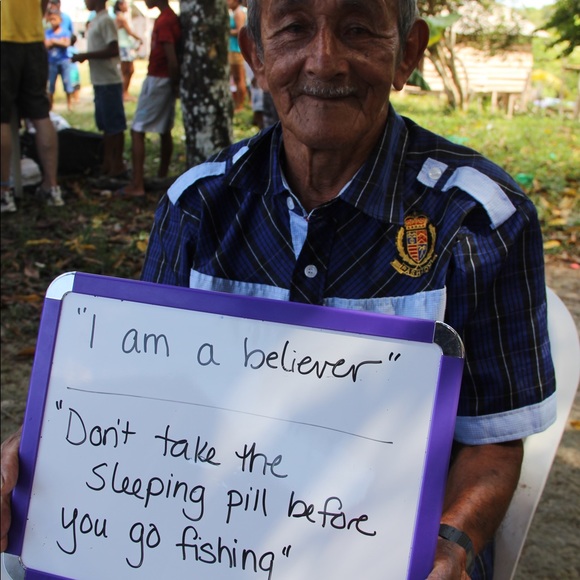 "I am a believer"
"Don't take the
sleeping pill before
you go fishing"